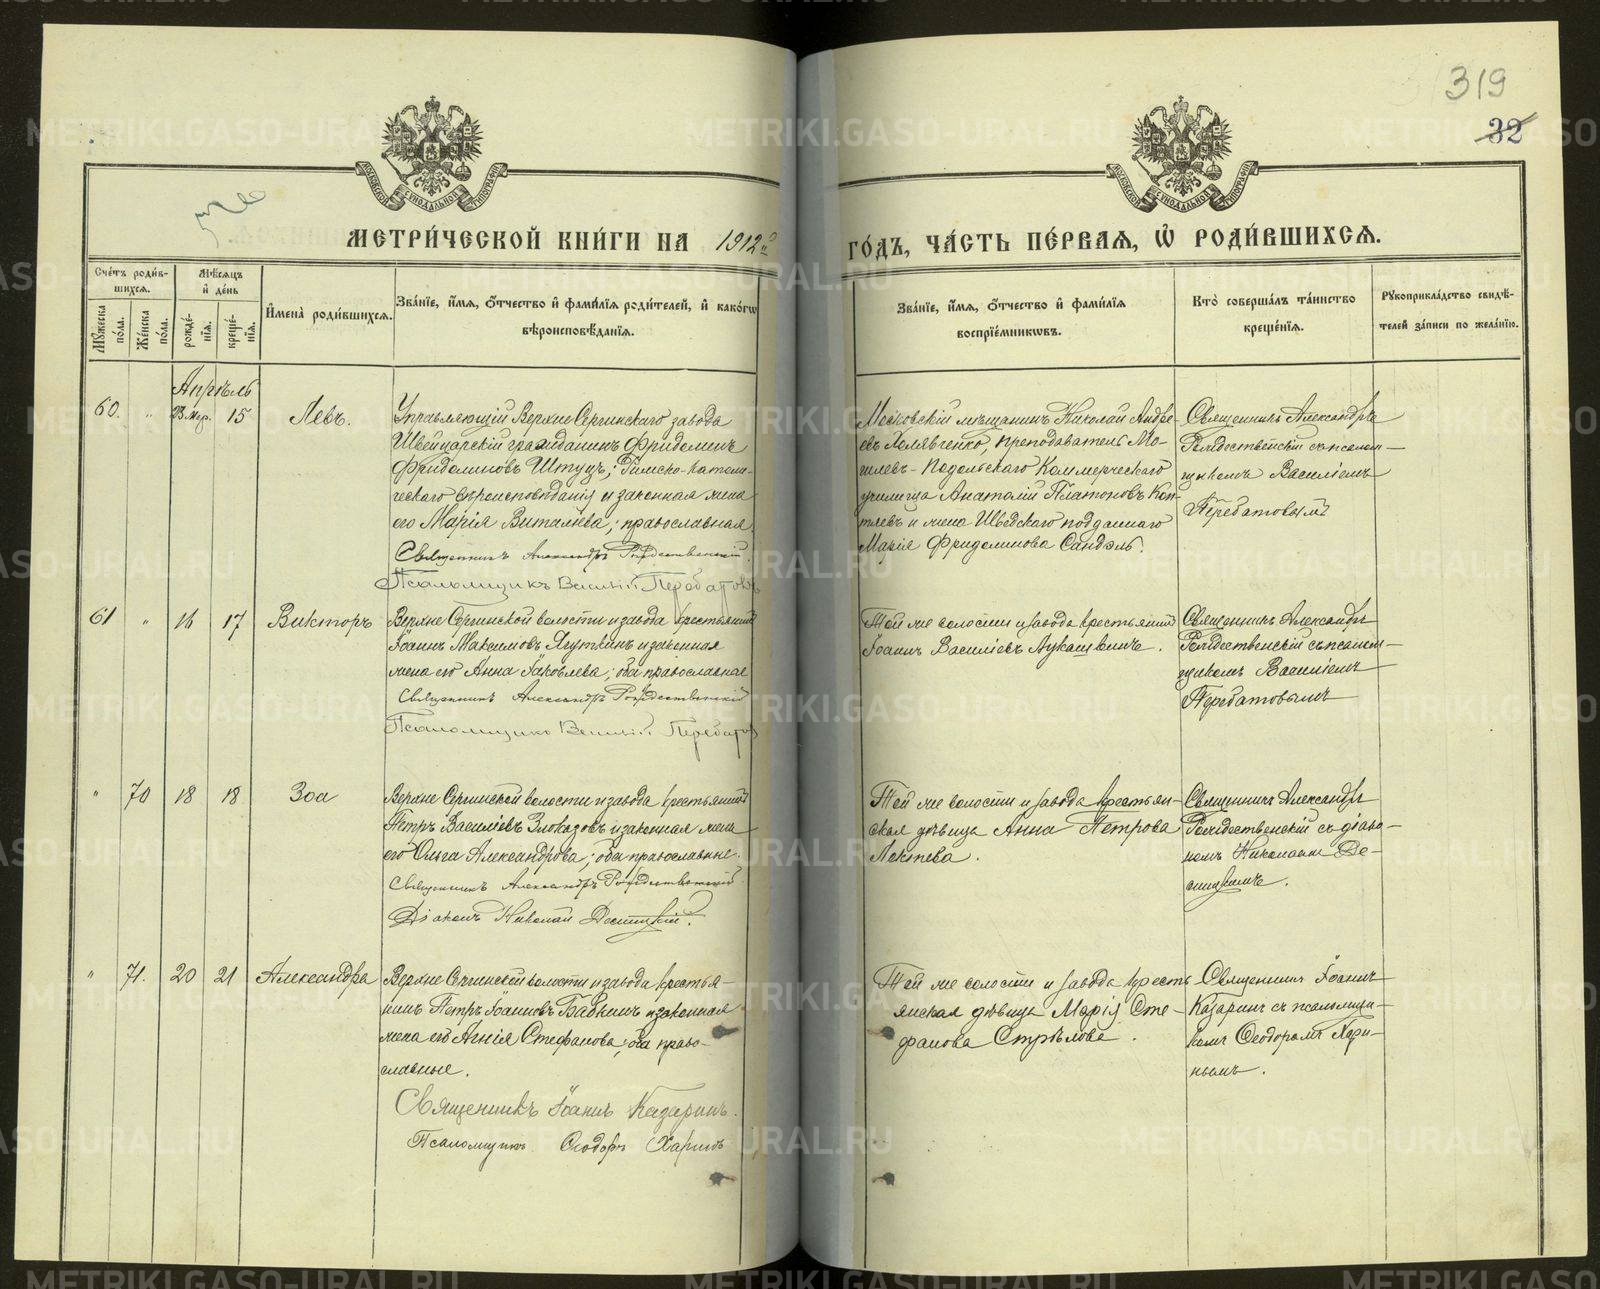 319
32
МОСКОВСКОЙ СѴНОДАЛЬНОЙ ТИПОГРАФІИ
МОСКОВСКОЙ СѴНОДАЛЬНОЙ ТИПОГРАФІИ
МЕТРИ́ЧЕСКОЙ КНИ́ГИ НА 1912й
ГО́ДЪ, ЧА́СТЬ ПЕ́РВАЯ, Ѡ҆ РОДИ́ВШИХСѦ.
Сче́тъ роди́в-
шихся.
Мѣ́сяцъ
и҆ де́нь
Мꙋ́жеска по́ла.
Же́нска по́ла.
рожде́-
нїѧ.
креще́-
нїѧ.
И҆мена̀ роди́вшихсѧ.
Зва́нїе, и҆́мѧ, ѻ҆́тчество и҆ фами́лїѧ роди́телей, и҆ како́гѡ
вѣроисповѣ́данїѧ.
Зва́нїе, и҆́мѧ, ѻ҆́тчество и҆ фами́лїѧ
воспрїе́мникѡвъ.
Кто̀ соверша́лъ та́инство
креще́нїѧ.
Рꙋкоприкла́дство свидѣ́-
телей за́писи по жела́нїю.
Апрѣль
60. " 23 Мар. 15 Левъ.
Управляющій Верхне Сергинскаго завода
Швейцарскій гражданинъ Фридолинъ
Фридолиновъ Штуцъ; Римско-католи-
ческаго вѣроисповѣданія и законная жена
его Марія Виталіева; православная
Священникъ Александръ Рождественскій
Псаломщикъ Василій Перебатовъ
Московскій мѣщанинъ Николай Андре-
евъ, преподаватель Мо-
гилевъ-Подольскаго Коммерческаго
училища Анатолій Платоновъ Коп-
тяевъ и жена Шведскаго подданнаго
Марія Фридолинова Сандэль.
Священникъ Александръ
Рождественскій съ псалом-
щикомъ Василіемъ
Перебатовымъ
61 " 16 17 Викторъ
Верхне Сергинской волости и завода крестьянинъ
Іоаннъ Максимовъ Ягуткинъ и законная
жена его Анна Іаковлева; оба православные
Священникъ Александръ Рождественскій
Псаломщикъ Василій Перебатовъ
Той же волости и завода крестьянинъ
Іоаннъ Василіевъ Лукашевичъ.
Священникъ Александръ
Рождественскій съ псалом-
щикомъ Василіемъ
Перебатовымъ
" 70 18 18 Зоа
Верхне Сергинской волости и завода крестьянинъ
Петръ Василіевъ Злоказовъ и законная жена
его Ольга Александрова; оба православные.
Священникъ Александръ Рождественскій
Діаконъ Николай Десницкій.
Той же волости и завода крестьян-
ская дѣвица Анна Петрова
Лактева.
Священникъ Александръ
Рождественскій съ діако-
номъ Николаемъ Де-
сницкимъ.
" 71. 20 21 Александра
Верхне Сергинской волости и завода крестья-
нинъ Петръ Іоанновъ Бабкинъ и законная
жена его Агнія Стефанова; оба право-
славные.
Священникъ Іоаннъ Казаринъ.
Псаломщикъ Ѳеодоръ Харинъ
Той же волости и завода кресть
янская дѣвица Марія Сте-
фанова Стрѣлова.
Священникъ Іоаннъ
Казаринъ съ псаломщи-
комъ Ѳеодоромъ Хари-
нымъ.
METRIKI.GASO-URAL.RU